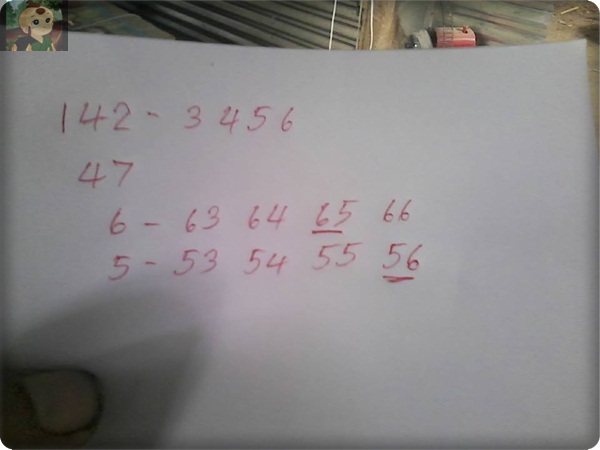 142 - 3 4 5 6
47
6 - 63 64 65 66
5 - 53 54 55 56